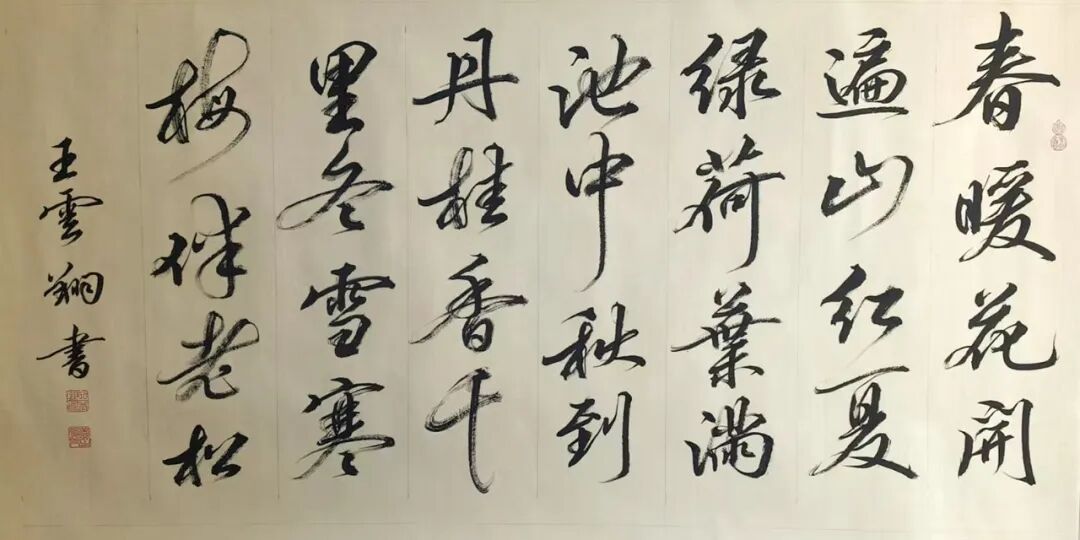 春暖花開
遍山红夏
绿荷葉满
池中秋到
丹桂香千
里冬雪寒
梅伴老松
王雲翔書